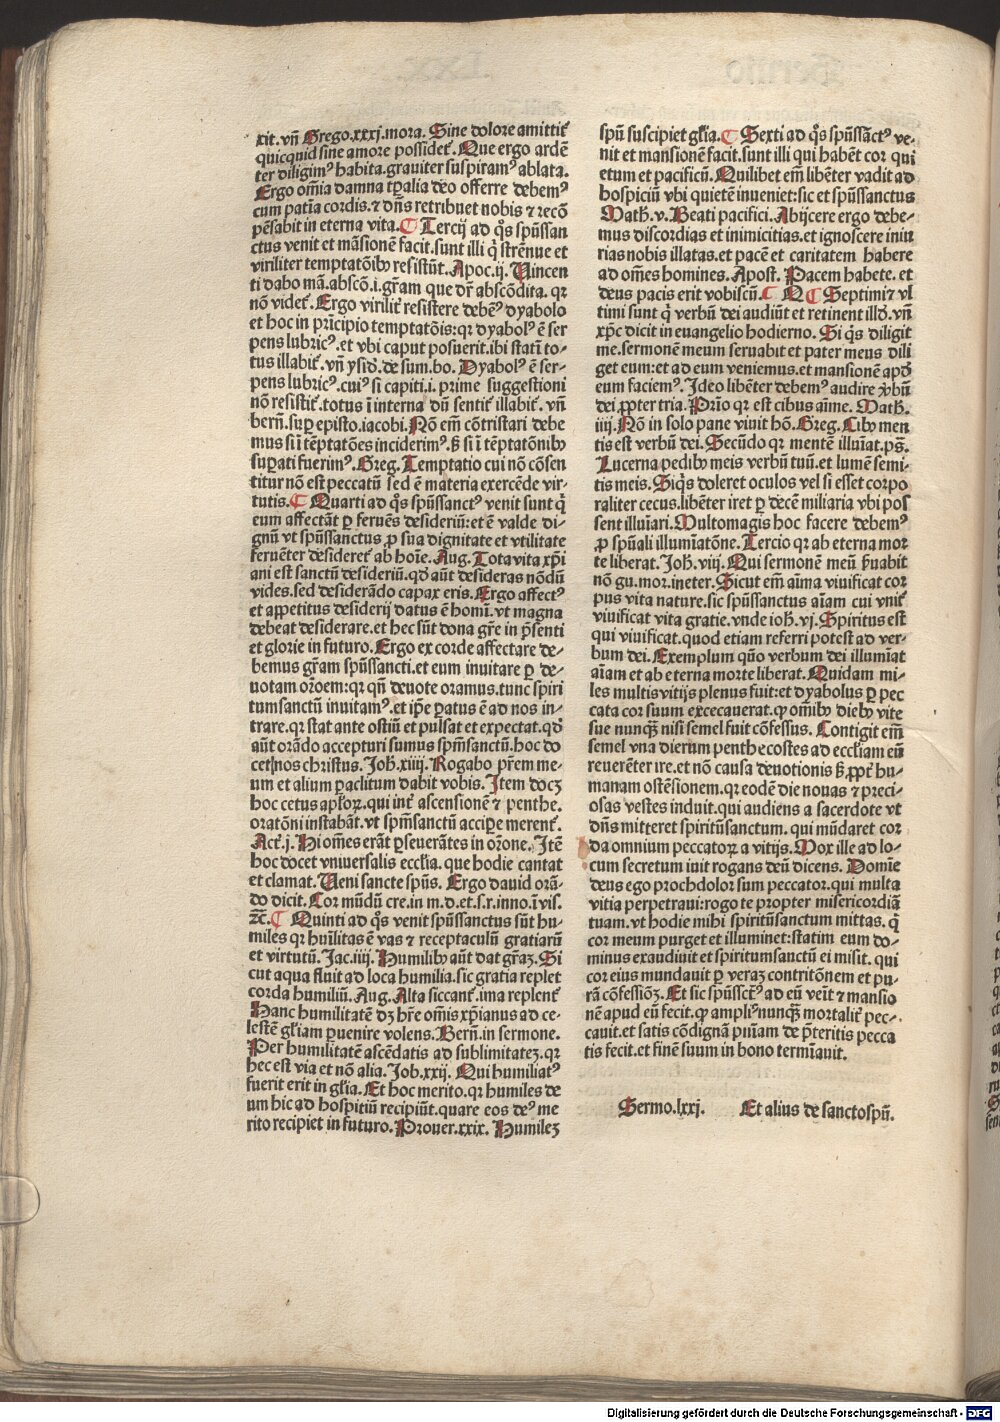 xit. vñ Grego.xxxj.mora. Sine dolore amittit᷑
quicquid sine amore possidet᷑. Que ergo ardẽ
ter diligimꝰ habita.grauiter suspiramꝰ ablata.
Ergo om̃ia damna tꝑalia deo offerre debemꝰ
cum patĩa cordis.⁊ dñs retribuet nobis ⁊ recõ
pẽsabit in eterna vita.¶ Tercij ad q̃s spũssan
ctus venit et mãsionẽ facit.sunt illi q̇ strẽnue et
viriliter temptatõib᷒ resistũt. Apoc.ij. Uincen
ti dabo mã.abscõ.i.gr̃am que dr̃ abscõdita. qꝛ
nõ videt᷑. Ergo virilit᷑ resistere debẽꝰ dyabolo
et hoc in pr̃icipio temptatõis:qꝛ dyabolꝰ ẽ ser
pens lubricꝰ.et vbi caput posuerit.ibi statĩ to-
tus illabit᷑. vñ ysid᷑. de sum.bo. Dyabolꝰ ẽ ser-
pens lubricꝰ.cuiꝰ si capiti.i. prime suggestioni
nõ resistit᷑.totus ĩ interna dũ sentit᷑ illabit᷑. vñ
berñ.suꝑ episto.iacobi. Nõ em̃ cõtristari debe
mus si ĩ tẽptatões inciderimꝰ.ß si ĩ tẽptatõnib᷒
suꝑati fuerimꝰ. Greg. Temptatio cui nõ cõsen
titur nõ est peccatũ sed ẽ materia exercẽde vir-
tutis.¶ Quarti ad q̃s spũssanctꝰ venit sunt q̇
eum affectãt ꝑ feruẽs desideriũ:et ẽ valde di-
gnũ vt spũssanctus ꝓ sua dignitate et vtilitate
feruẽter desideret᷑ ab hoĩe. Aug. Tota vita xp̃i
ani est sanctũ desideriũ. qd̓ aũt desideras nõdũ
vides.sed desiderãdo capax eris. Ergo affectꝰ
et appetitus desiderij datus ẽ homĩ. vt magna
debeat desiderare.et hec sũt dona gr̃e in p̃senti
et glorie in futuro. Ergo ex corde affectare de-
bemus gr̃am spũssancti.et eum inuitare ꝑ de-
uotam or̃oem:qꝛ qñ deuote oramus.tunc spiri
tumsanctũ inuitamꝰ.et ip̃e ꝑatus ẽ ad nos in-
trare.qꝛ stat ante ostiũ et pulsat et expectat. qd̓
aũt orãdo accepturi sumus spm̃sanctũ.hoc do
cet nos christus. Joh̃.xiiij. Rogabo pr̃em me-
um et alium paraclitum dabit vobis. Item docꝫ
hoc cetus apl̃oꝝ.qui int᷑ ascensionẽ ⁊ penthe.
oratõni instabãt. vt spm̃sanctũ accipe merent᷑.
Act᷑.j. Hi om̃es erãt ꝑseuerãtes in or̃one. Itẽ
hoc docet vniuersalis eccl̃ia. que hodie cantat
et clamat. Ueni sancte spũs. Ergo dauid orã-
do dicit. Cor mũdũ cre.in m.d.et.s.r.inno.ĩ vis.
⁊c̃.¶ Quinti ad q̃s venit spũssanctus sũt hu-
miles qꝛ hu͂litas ẽ vas ⁊ receptaculũ gratiarũ
et virtutũ. Jac.iiij. Humilib᷒ aũt dat gr̃aꝫ. Si
cut aqua fluit ad loca humilia.sic gratia replet
corda humiliũ. Aug. Alta siccant᷑. ima replent᷑
Hanc humilitatẽ dꝫ hr̃e om̃is xp̃ianus ad ce-
lestẽ gl̃iam ꝑuenire volens. Berñ.in sermone.
Per humilitatẽ ascẽdatis ad sublimitateꝫ. qꝛ
hec est via et nõ alia. Job.xxij. Qui humiliatꝰ
fuerit erit in gl̃ia. Et hoc merito.qꝛ humiles de
um hic ad hospitiũ recipiũt.quare eos deꝰ me
rito recipiet in futuro. Prouer.xxix. Humileꝫ
spũ suscipiet gl̃ia.¶ Sexti ad q̃s spũssãctꝰ ve-
nit et mansionẽ facit.sunt illi qui habẽt cor qui
etum et pacificũ. Quilibet em̃ libẽter vadit ad
hospiciũ vbi quietẽ inueniet:sic et spũssanctus
Math̃.v. Beati pacifici. Abijcere ergo debe-
mus discordias et inimicitias.et ignoscere iniu
rias nobis illatas.et pacẽ et caritatem habere
ad om̃es homines. Apost. Pacem habete. et
deus pacis erit vobiscũ.¶ N ¶ Septimi ⁊ vl
timi sunt q̇ verbũ dei audiũt et retinent illd̓. vñ
xp̃c dicit in euangelio hodierno. Si q̇s diligit
me.sermonẽ meum seruabit et pater meus dili
get eum:et ad eum veniemus.et mansionẽ apd̓
eum faciemꝰ. Ideo libẽter debemꝰ audire v̓bũ
dei ꝓpter tria. Prĩo qꝛ est cibus aĩme. Math̃.
iiij. Nõ in solo pane viuit hõ. Greg. Cib᷒ men
tis est verbũ dei. Secũdo qꝛ mentẽ illuĩat. pš.
Lucerna pedib᷒ meis verbũ tuũ.et lumẽ semi-
tis meis. Siq̇s doleret oculos vel si esset corpo
raliter cecus.libẽter iret ꝑ decẽ miliaria vbi pos
sent illuĩari. Multomagis hoc facere debemꝰ
ꝓ spũali illumĩatõne. Tercio qꝛ ab eterna mor
te liberat. Joh̃. viij. Qui sermonẽ meũ ẜuabit
nõ gu.mor.ineter. Sicut em̃ aĩma viuificat cor
pus vita nature.sic spũssanctus aĩam cui vnit᷑
viuificat vita gratie. vnde ioh̃. vj. Spiritus est
qui viuificat.quod etiam referri potest ad ver-
bum dei. Exemplum quõ verbum dei illumĩat
aĩam et ab eterna morte liberat. Quidam mi-
les multis vitijs plenus fuit:et dyabolus ꝑ pec
cata cor suum excecauerat.qꝙ om̃ib᷒ dieb᷒ vite
sue nunqꝫ nisi semel fuit cõfessus. Contigit em̃
semel vna dierum penthecostes ad eccl̃iam eũ
reuerẽter ire.et nõ causa deuotionis ß ꝓpt᷑ hu-
manam ostẽsionem.qꝛ eodẽ die nouas ⁊ preci-
osas vestes induit.qui audiens a sacerdote vt
dñs mitteret spiritũsanctum. qui mũdaret cor
da omnium peccatoꝝ a vitijs. Mox ille ad lo-
cum secretum iuit rogans deũ dicens. Domĩe
deus ego prochdolor sum peccator.qui multa
vitia perpetraui:rogo te propter misericordiã
tuam. vt hodie mihi spiritũsanctum mittas. q̇
cor meum purget et illuminet:statim eum do-
minus exaudiuit et spiritumsanctũ ei misit. qui
cor eius mundauit ꝑ veraꝫ contritõnem et pu-
rã cõfessiõꝫ. Et sic spũssct̃ꝰ ad eũ veĩt ⁊ mansio
nẽ apud eũ fecit.qꝙ ampliꝰ nunqꝫ mortalit᷑ pec-
cauit.et satis cõdignã pniam de p̃teritis pecca
tis fecit.et finẽ suum in bono termĩauit.
Sermo.lxxj. Et alius de sanctospũ.
Digitalisierung gefördert durch die Deutsche Forschungsgemeinschaft - DFG